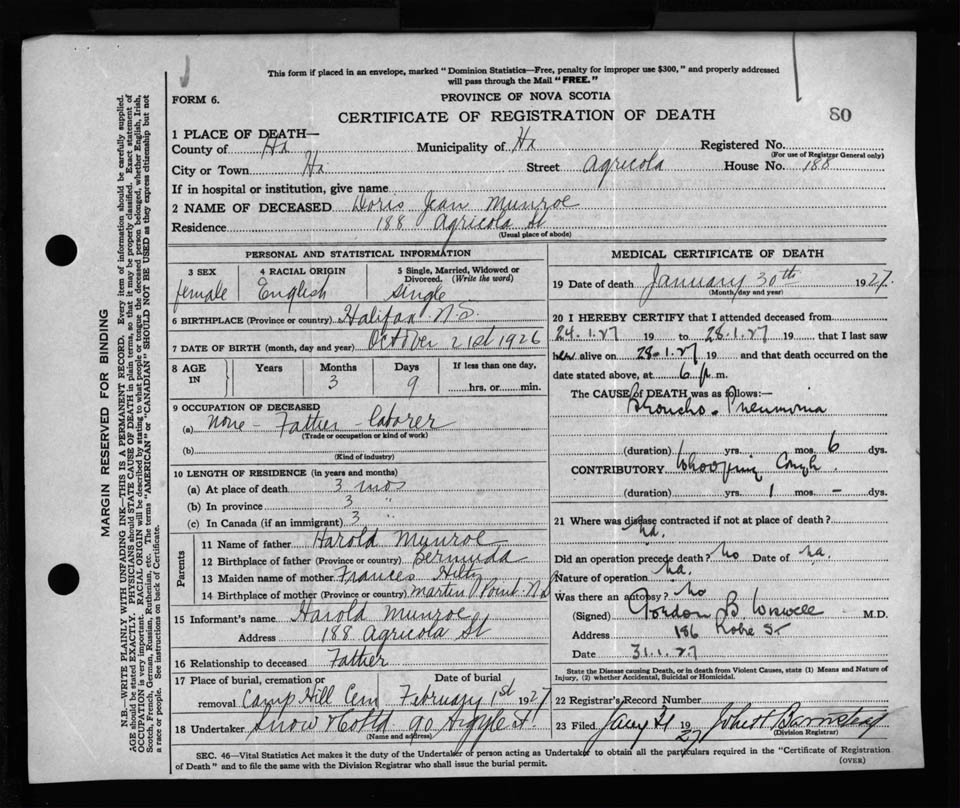 This form if placed in an envelope, marked "Dominion Statistics—Free, penalty for improper use $300," and properly addressed
will pass through the Mail "FREE."
FORM 6.
PROVINCE OF NOVA SCOTIA
CERTIFICATE OF REGISTRATION OF DEATH
80
1 PLACE OF DEATH—
County of Hx Municipality of Hx Registered No.
(For use of Registrar General only)
City or Town Hx Street Agricola House No. 188
If in hospital or institution, give name
2 NAME OF DECEASED Doris Jean Munroe
Residence 188 Agricola St
(Usual place of abode)
PERSONAL AND STATISTICAL INFORMATION
3 SEX 4 RACIAL ORIGIN 5 Single, Married, Widowed or Divorced. (Write the word)
female English single
6 BIRTHPLACE (Province or country) Halifax N.S.
7 DATE OF BIRTH (month, day and year) October 21st 1926
8 AGE IN Years Months Days If less than one day,
3 9 hrs. or min.
9 OCCUPATION OF DECEASED
(a) None - Father - laborer
(Trade or occupation or kind of work)
(b)
(Kind of industry)
10 LENGTH OF RESIDENCE (in years and months)
(a) At place of death 3 mos
(b) In province 3 "
(c) In Canada (if an immigrant) 3 "
Parents
11 Name of father Harold Munroe
12 Birthplace of father (Province or country) Bermuda
13 Maiden name of mother Frances Hiltz
14 Birthplace of mother (Province or country) Martin Point N.S
15 Informant's name Harold Munroe
Address 188 Agricola St
16 Relationship to deceased Father
17 Place of burial, cremation or removal Date of burial
Camp Hill Cem February 1st 1927
18 Undertaker Snow & Co Ltd. 90 Argyle St.
(Name and address)
MEDICAL CERTIFICATE OF DEATH
19 Date of death January 30th 1927.
(Month, day and year)
20 I HEREBY CERTIFY that I attended deceased from
24.1.27 19 to 28.1.27 19 that I last saw
her alive on 28.1.27 19 and that death occurred on the
date stated above, at 6 p m.
The CAUSE of DEATH was as follows:—
Broncho-Pneumonia
(duration) yrs. mos. 6 dys.
CONTRIBUTORY Whooping Cough
(duration) yrs. 1 mos. - dys.
21 Where was disease contracted if not at place of death?
na.
Did an operation precede death? no Date of na.
Nature of operation na.
Was there an autopsy? No
(Signed) Gordon B. Wiswell M.D.
Address 186 Robie St
Date 31.1.27
State the Disease causing Death, or in death from Violent Causes, state (1) Means and Nature of
Injury, (2) whether Accidental, Suicidal or Homicidal.
22 Registrar's Record Number
23 Filed Jany 31 1927 John H Barnstead
(Division Registrar)
SEC. 46—Vital Statistics Act makes it the duty of the Undertaker or person acting as Undertaker to obtain all the particulars required in the "Certificate of Registration
of Death" and to file the same with the Division Registrar who shall issue the burial permit.
(OVER)
MARGIN RESERVED FOR BINDING
N.B.—WRITE PLAINLY WITH UNFADING INK—THIS IS A PERMANENT RECORD. Every item of information should be carefully supplied.
AGE should be stated EXACTLY. PHYSICIANS should STATE CAUSE OF DEATH in plain terms, so that it may be properly classified. Exact statement of
OCCUPATION is very important. RACIAL ORIGIN will be described by stating to what people or tongue the deceased person belonged, whether English, Irish,
Scotch, French, German, Russian, Ruthenian, etc. The terms "AMERICAN" or "CANADIAN" SHOULD NOT BE USED as they express citizenship but not
a race or people. See instructions on back of Certificate.